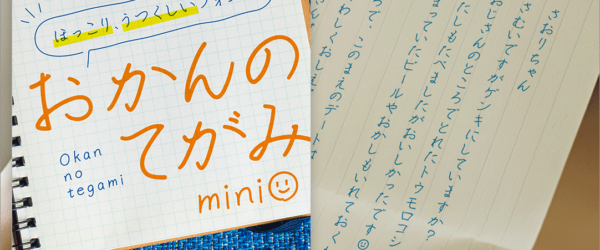 ほっこり、うつくしいフォ
おかんの
てがみ
Okan
no
tegami
mini
さおりちゃん
さむいですがゲンキにしていますか？
おじさんのところでとれたトウモロコシ
にしもたべましたがおいしかったです
まっていたビールやおかしもいれておく
で、このまえのデートは
わしくおしえ